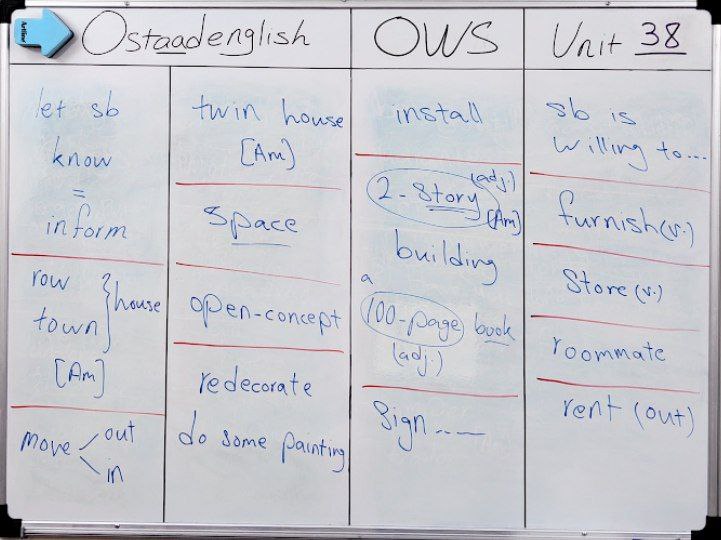 Artline
Ostaadenglish
OWS
Unit 38
let sb
know
=
inform
row
town
} house
[Am]
move
out
in
twin house
[Am]
space
open-concept
redecorate
do some painting
install
2-story (adj.)
[Am]
building
a
100-page book
(adj.)
Sign ----
sb is
willing to...
furnish (v.)
Store (v.)
roommate
rent (out)